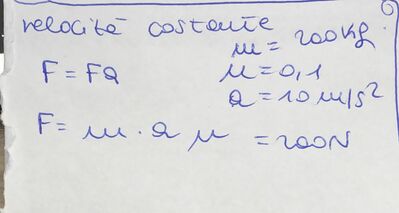 velocità costante
m = 200 kg
F = Fa
μ = 0,1
a = 10 m/s²
F = m · a μ = 200N